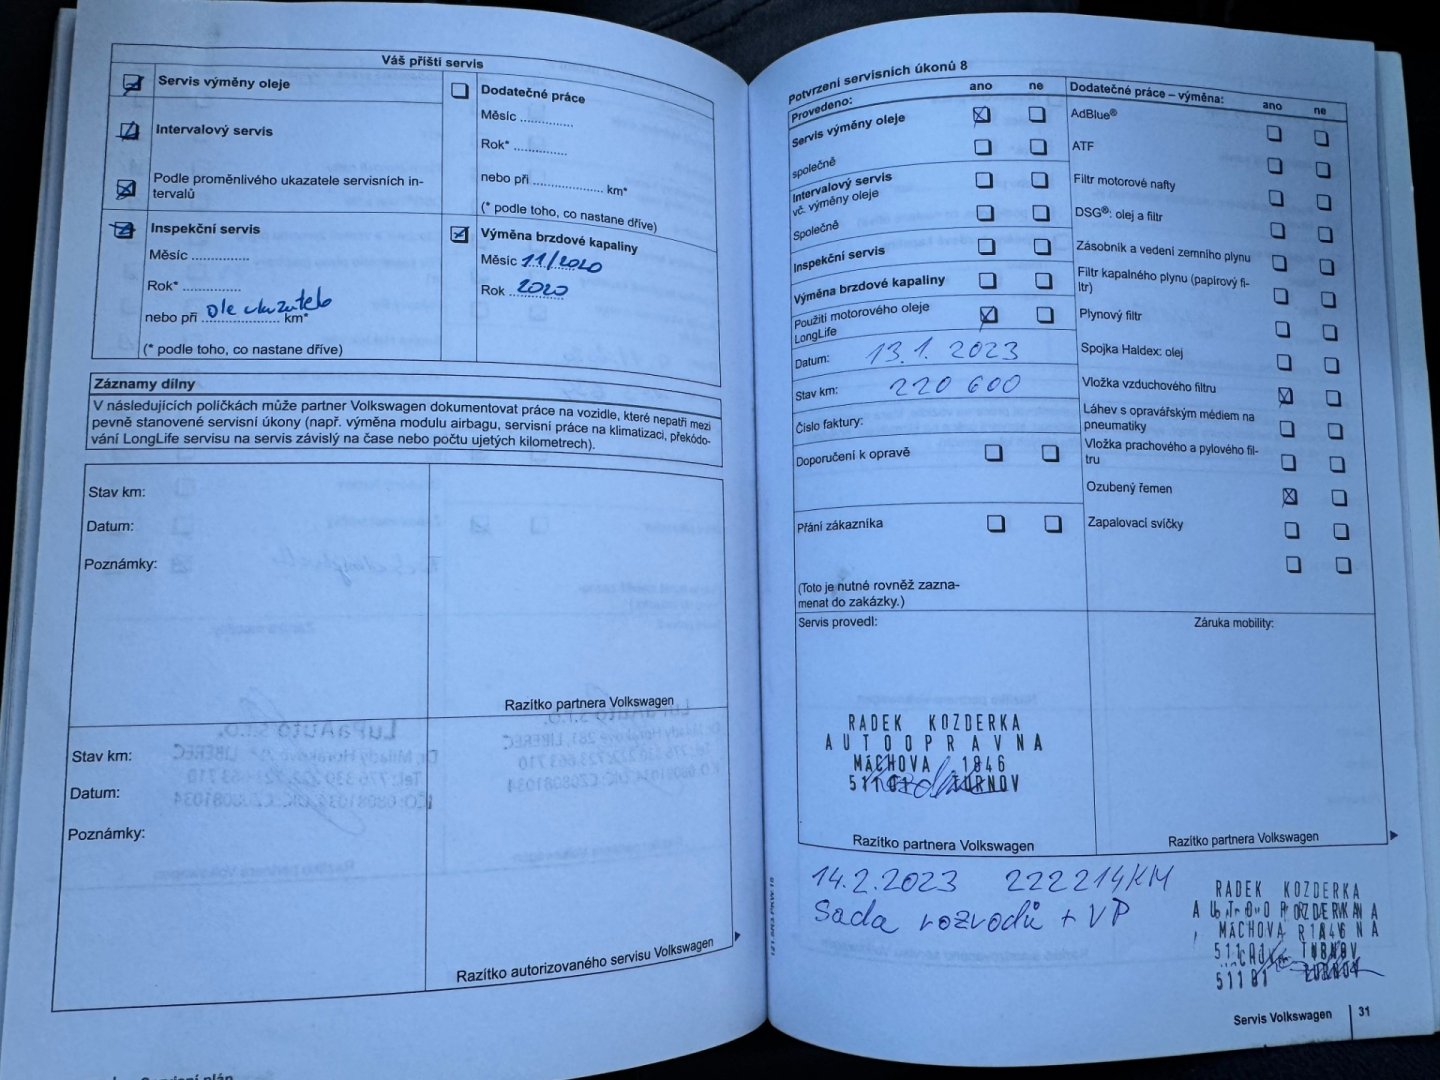 Váš příští servis
Servis výměny oleje
Intervalový servis
Podle proměnlivého ukazatele servisních in-
tervalů
Dodatečné práce
Měsíc ..............
Rok* ..............
nebo při .................. km*
(* podle toho, co nastane dříve)
Inspekční servis
Měsíc ..............
Rok* ..............
nebo při dle ukazatele km*
(* podle toho, co nastane dříve)
Výměna brzdové kapaliny
Měsíc 11/2020
Rok 2020
Záznamy dílny
V následujících políčkách může partner Volkswagen dokumentovat práce na vozidle, které nepatří mezi
pevně stanovené servisní úkony (např. výměna modulu airbagu, servisní práce na klimatizaci, překódo-
vání LongLife servisu na servis závislý na čase nebo počtu ujetých kilometrech).
Stav km:
Datum:
Poznámky:
Razítko partnera Volkswagen
Stav km:
Datum:
Poznámky:
Razítko autorizovaného servisu Volkswagen
Potvrzení servisních úkonů 8
Provedeno: ano ne
Servis výměny oleje
společně
Intervalový servis
vč. výměny oleje
Společně
Inspekční servis
Výměna brzdové kapaliny
Použití motorového oleje
LongLife
Datum: 13.1. 2023
Stav km: 220 600
Číslo faktury:
Doporučení k opravě
Přání zákazníka
(Toto je nutné rovněž zazna-
menat do zakázky.)
Dodatečné práce – výměna: ano ne
AdBlue®
ATF
Filtr motorové nafty
DSG®: olej a filtr
Zásobník a vedení zemního plynu
Filtr kapalného plynu (papírový fi-
ltr)
Plynový filtr
Spojka Haldex: olej
Vložka vzduchového filtru
Láhev s opravářským médiem na
pneumatiky
Vložka prachového a pylového fil-
tru
Ozubený řemen
Zapalovací svíčky
Servis provedl:
RADEK KOZDERKA
AUTOOPRAVNA
MÁCHOVA 1846
511 01 TURNOV
Razítko partnera Volkswagen
Záruka mobility:
Razítko partnera Volkswagen
14.2.2023 222214KM
Sada rozvodů + VP
RADEK KOZDERKA
MÁCHOVA
511 01 TURNOV
121.5R3.PKW.15
Servis Volkswagen 31
Servisní plán